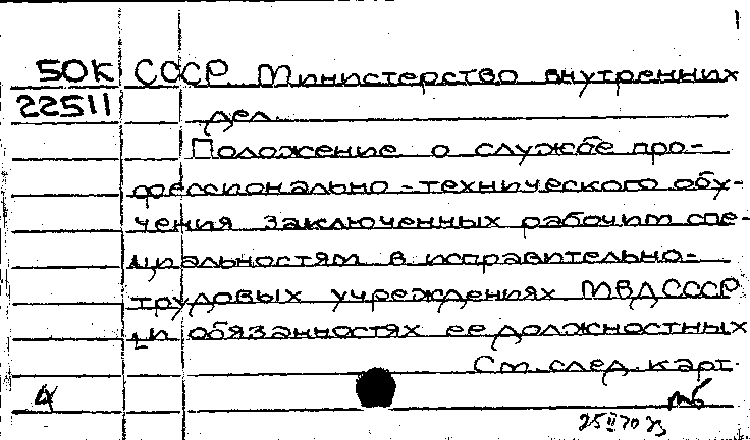 1
50К СССР. Министерство внутренних
22511 дел.
Положение о службе про-
фессионально-технического обу-
чения заключенных рабочим спе-
циальностям в исправительно-
трудовых учреждениях МВД СССР
и обязанностях ее должностных
См. след. карт.
25 II 70